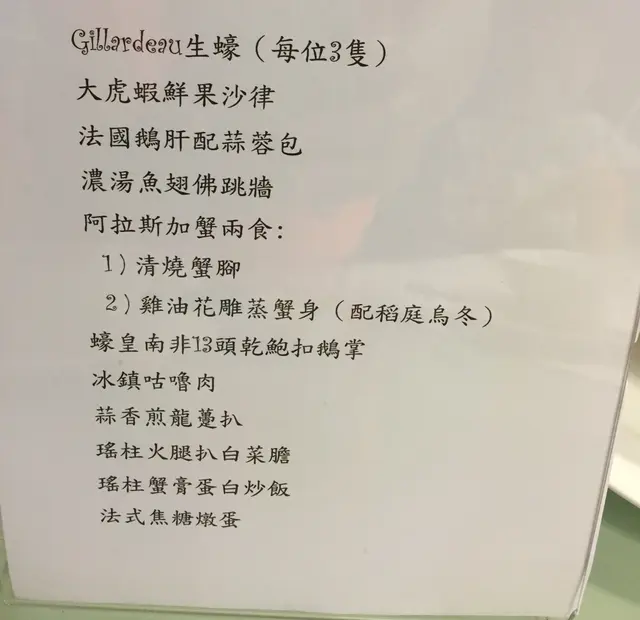 Gillardeau生蠔（每位3隻）
大虎蝦鮮果沙律
法國鵝肝配蒜蓉包
濃湯魚翅佛跳牆
阿拉斯加蟹兩食：
1）清燒蟹腳
2）雞油花雕蒸蟹身（配稻庭烏冬）
蠔皇南非13頭乾鮑扣鵝掌
冰鎮咕嚕肉
蒜香煎龍躉扒
瑤柱火腿扒白菜膽
瑤柱蟹膏蛋白炒飯
法式焦糖燉蛋